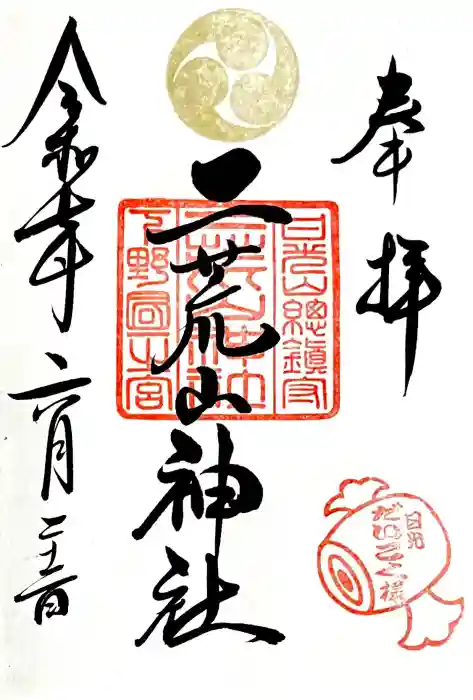 奉拝
日光山總鎮守
二荒山神社
下野國一宮
二荒山神社
令和七年六月二十二日
日光
だいこく様